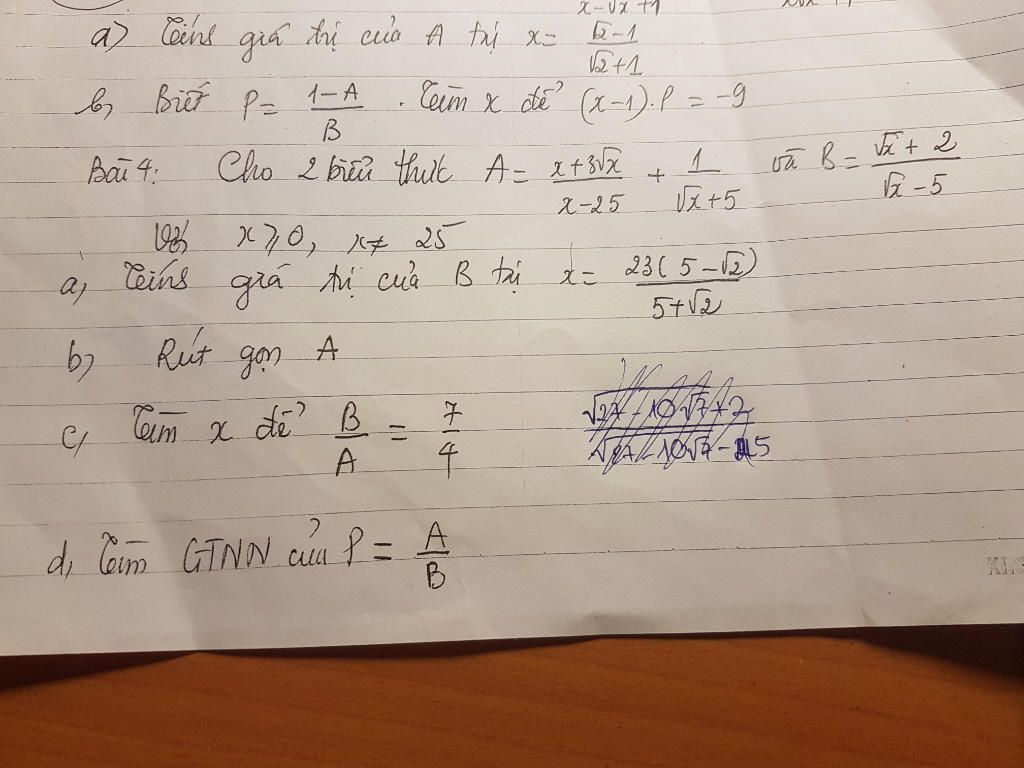 x-√x+1
a) Tính giá trị của A tại x= (√2-1)/(√2+1)
b, Biết P= (1-A)/B . Tìm x để (x-1).P = -9
Bài 4: Cho 2 biểu thức A= (x+3√x)/(x-25) + 1/(√x+5) và B= (√x+2)/(√x-5)
Với x⩾0, x≠ 25
a, Tính giá trị của B tại x= 23(5-√2)/(5+√2)
b) Rút gọn A
c, Tìm x để B/A = 7/4
d, Tìm GTNN của P= A/B
KLO